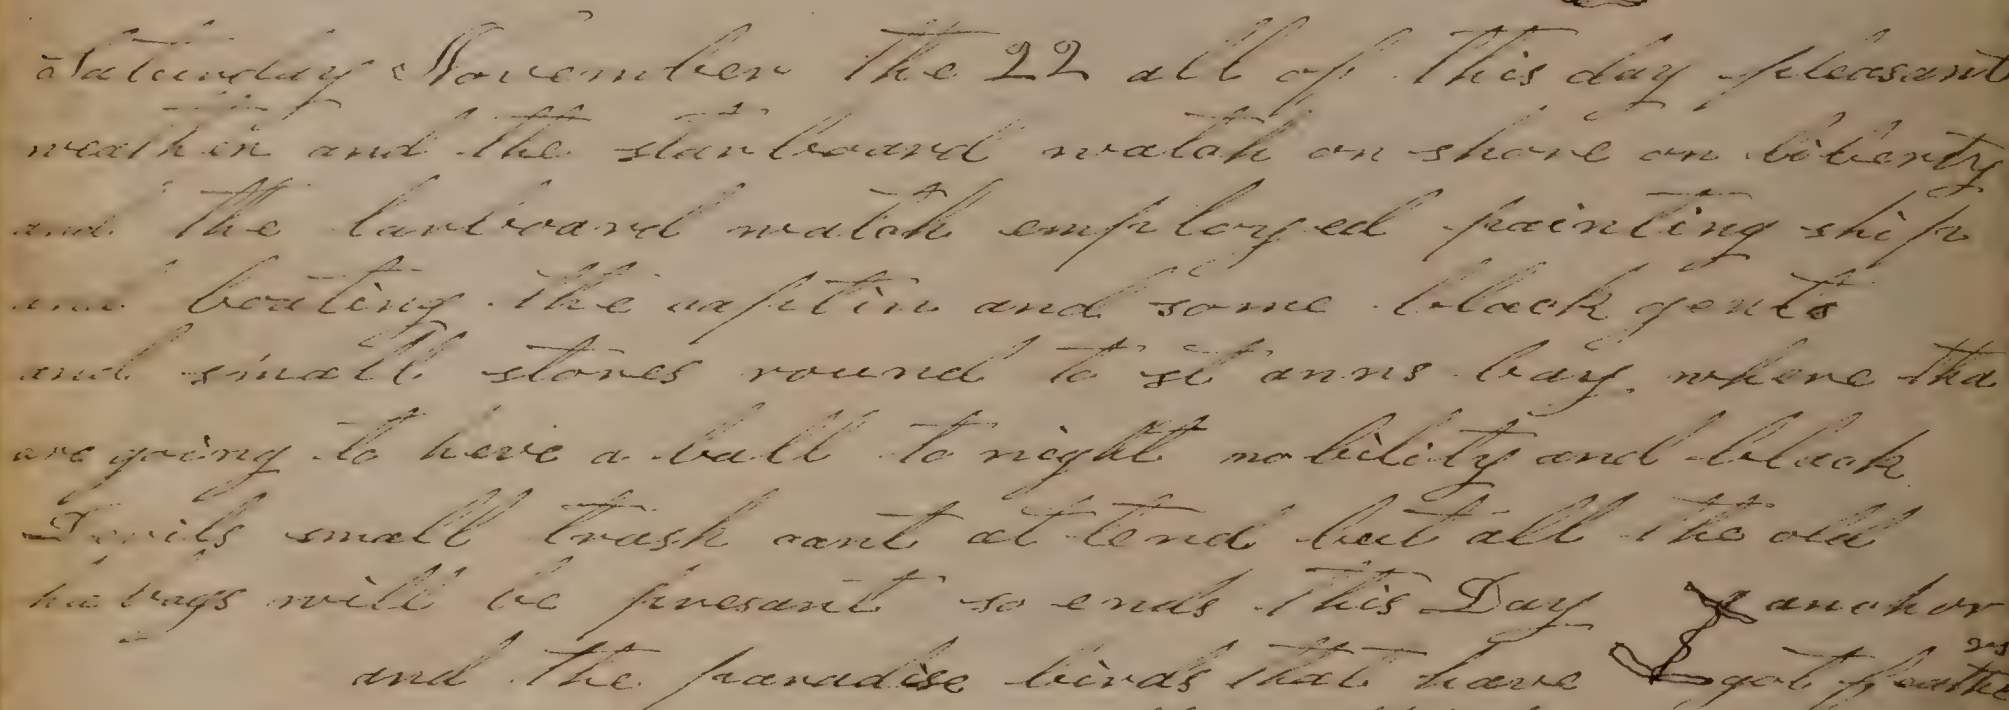 Saturday November the 22 all of this day pleasant
weather and the starboard watch on shore on liberty
and the larboard watch employed painting ship
and boating the captin and some black gents
and small stores round to st anns bay where tha
are going to have a ball to night nobility and black
Devils small trash cant at tend but all the old
bags will be presant so ends this Day anchor
and the paradise birds that have got feathe
rs